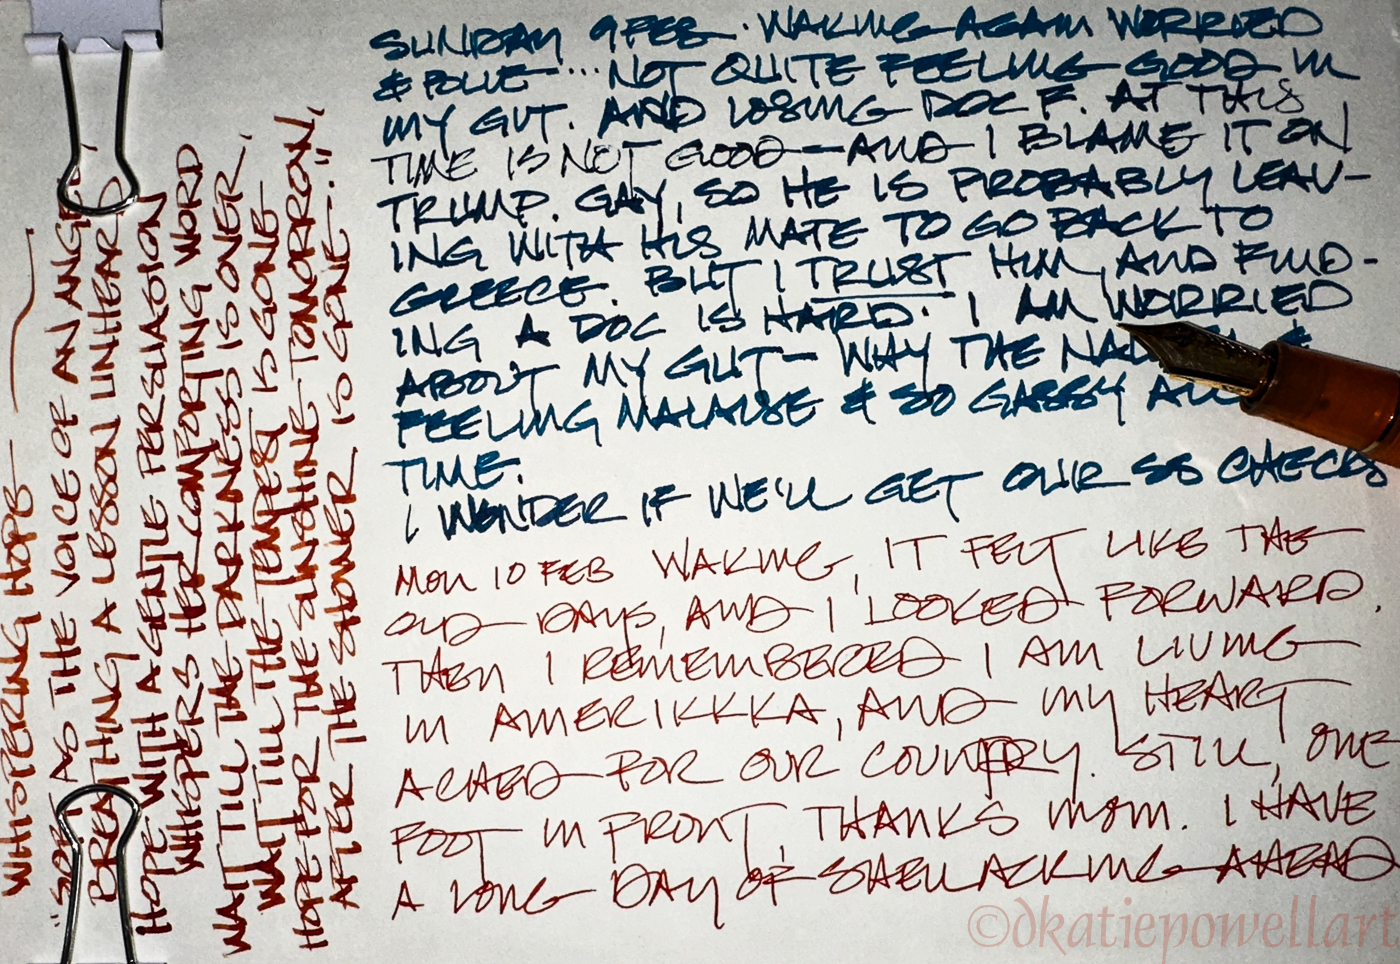 SUNDAY 9 FEB. WAKING AGAIN WORRIED
& BLUE ... NOT QUITE FEELING GOOD IN
MY GUT. AND LOSING DOC F. AT THIS
TIME IS NOT GOOD — AND I BLAME IT ON
TRUMP. GAY, SO HE IS PROBABLY LEAV-
ING WITH HIS MATE TO GO BACK TO
GREECE. BUT I TRUST HIM, AND FIND-
ING A DOC IS HARD. I AM WORRIED
ABOUT MY GUT — WHY THE &
FEELING MALAISE & SO GASSY ALL
TIME.
I WONDER IF WE'LL GET OUR SS CHECKS
MON 10 FEB WAKING, IT FELT LIKE THE
OLD DAYS, AND I LOOKED FORWARD.
THEN I REMEMBERED I AM LIVING
IN AMERIKKKA, AND MY HEART
ACHED FOR OUR COUNTRY. STILL, ONE
FOOT IN FRONT, THANKS MOM. I HAVE
A LONG DAY OF SHELLACKING AHEAD
WHISPERING HOPE
"SOFT AS THE VOICE OF AN ANGEL,
BREATHING A LESSON UNHEARD,
HOPE WITH A GENTLE PERSUASION
WHISPERS HER COMFORTING WORD
WAIT TILL THE DARKNESS IS OVER,
WAIT TILL THE TEMPEST IS GONE
HOPE FOR THE SUNSHINE TOMORROW,
AFTER THE SHOWER IS GONE..."
©dkatiepowellart